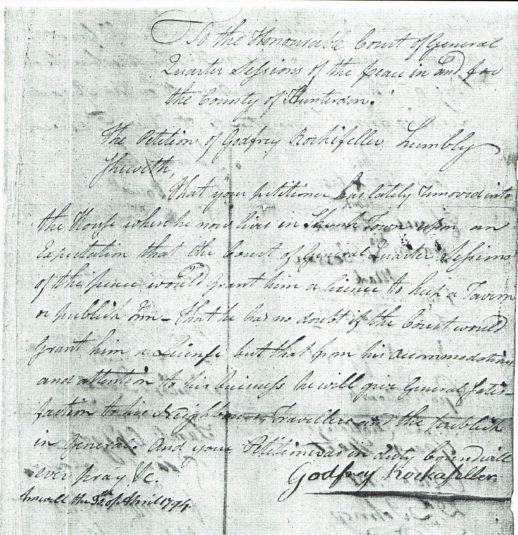 To the Honourable Court of General
Quarter Sessions of the peace in and for
the County of Hunterdon.
The Petition of Godfrey Rockefeller humbly
Sheweth,
That your petitioner has lately removed into
the House where he now lives in Town upon an
Expectation that the Court of General Quarter Sessions
of the peace would grant him a licence to keep a Tavern
or publick Inn - that he has no doubt if the Court would
grant him a License but that from his accommodations
and attention to his buisiness he will give General Satis-
faction to his Neighbours, Travellers and the publick
in General. And your Petitioner as in duty bound will
ever pray &c.
Godfrey Rockafeller
Amwell the of April 1794